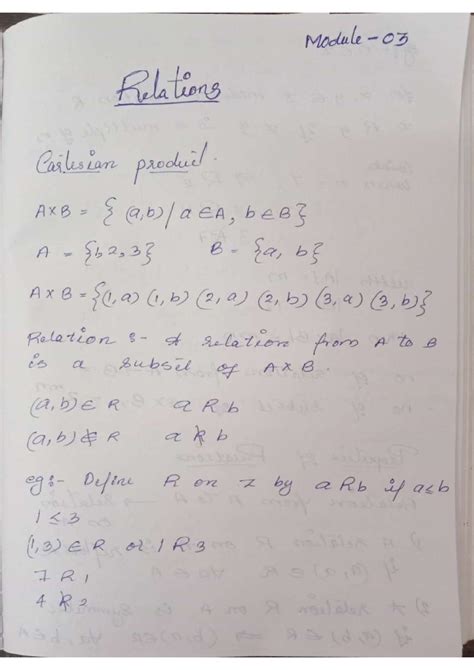 Module - 03
Relations
Cartesian product.
A×B = { (a,b) / a ∈ A, b ∈ B}
A = {1, 2, 3} B = {a, b}
A×B = {(1, a) (1, b) (2, a) (2, b) (3, a) (3, b)}
Relation :- A relation from A to B
is a subset of A×B.
(a,b) ∈ R a R b
(a,b) ∉ R a R̸ b
eg:- Define R on Z by aRb if a≤b
1 ≤ 3
(1,3) ∈ R or 1 R 3
7 R 1
4 R̸ 2